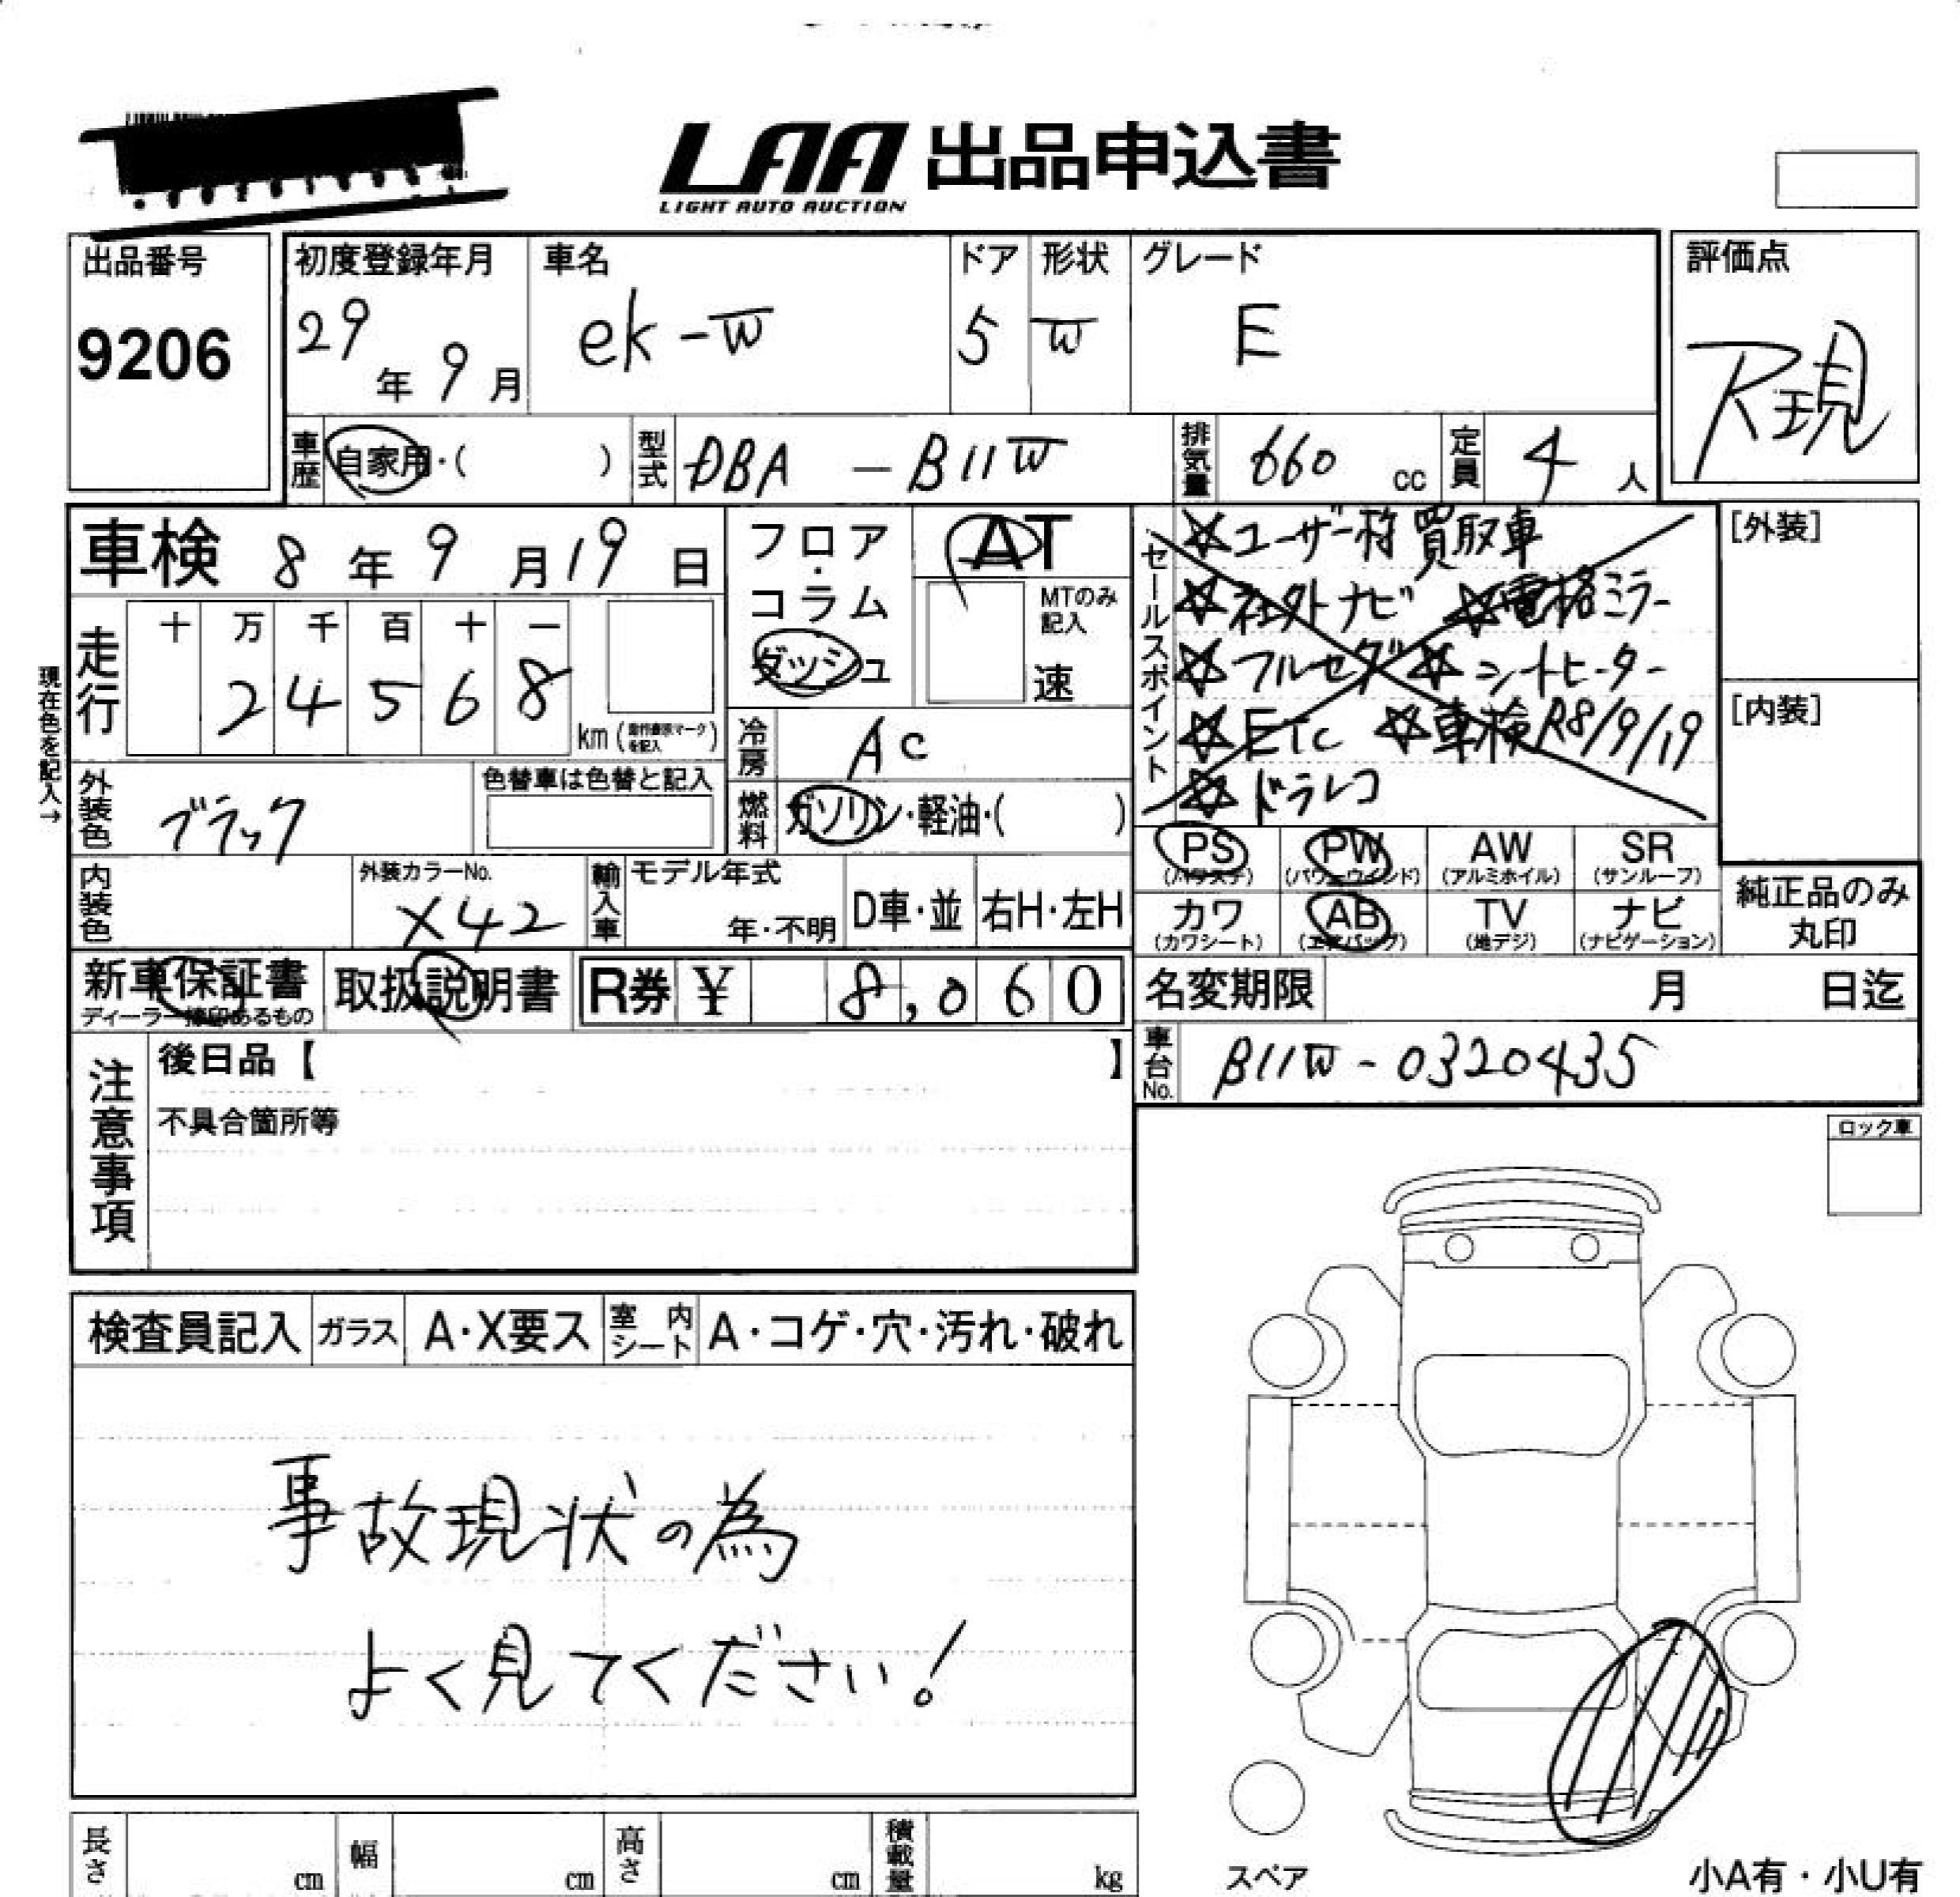 LAA 出品申込書
LIGHT AUTO AUCTION
出品番号
9206
初度登録年月
29年 9月
車名
ek-W
ドア
5
形状
W
グレード
E
評価点
R現
車歴
自家用・( )
型式
DBA - B11W
排気量
660 cc
定員
4 人
車検 8年 9月 19日
走行
十 万 千 百 十 一
2 4 5 6 8
km(
マーク
を記入
)
現在色を記入→
外装色
ブラック
色替車は色替と記入
内装色
外装カラーNo.
X42
フロア
・
コラム
ダッシュ
AT
MTのみ
記入
速
冷房
AC
燃料
ガソリン・軽油・( )
輸入車
モデル年式
年・不明
D車・並
右H・左H
セールスポイント
☆ユーザー様買取車
☆社外ナビ ☆電格ミラー
☆フルセグ ☆シートヒーター
☆ETC ☆車検R8/9/19
☆ドラレコ
[外装]
[内装]
PS
(パワステ)
PW
(パワーウインド)
AW
(アルミホイル)
SR
(サンルーフ)
カワ
(カワシート)
AB
(エアバッグ)
TV
(地デジ)
ナビ
(ナビゲーション)
純正品のみ
丸印
新車保証書
ディーラー捺印あるもの
取扱説明書
R券 ¥ 8,060
名変期限 月 日迄
車台No.
B11W-0320435
注意事項
後日品【 】
不具合箇所等
ロック車
検査員記入
ガラス
A・X要ス
室内シート
A・コゲ・穴・汚れ・破れ
事故現状の為
よく見てください!
長さ cm
幅 cm
高さ cm
積載量 kg
スペア
小A有・小U有